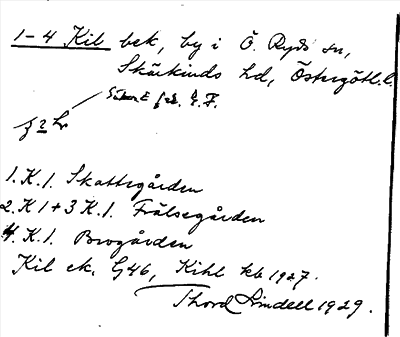 1-4 Kil bek, by i Ö. Ryds sn,
Skärkinds hd, Östergötl. l.
G.F.
1. K.1. Skattegården
2. K1+3 K.1. Frälsegården
4. K.1. Brogården
Kil ek. G46, Kihl kb 1927.
Thord Lindell 1929.